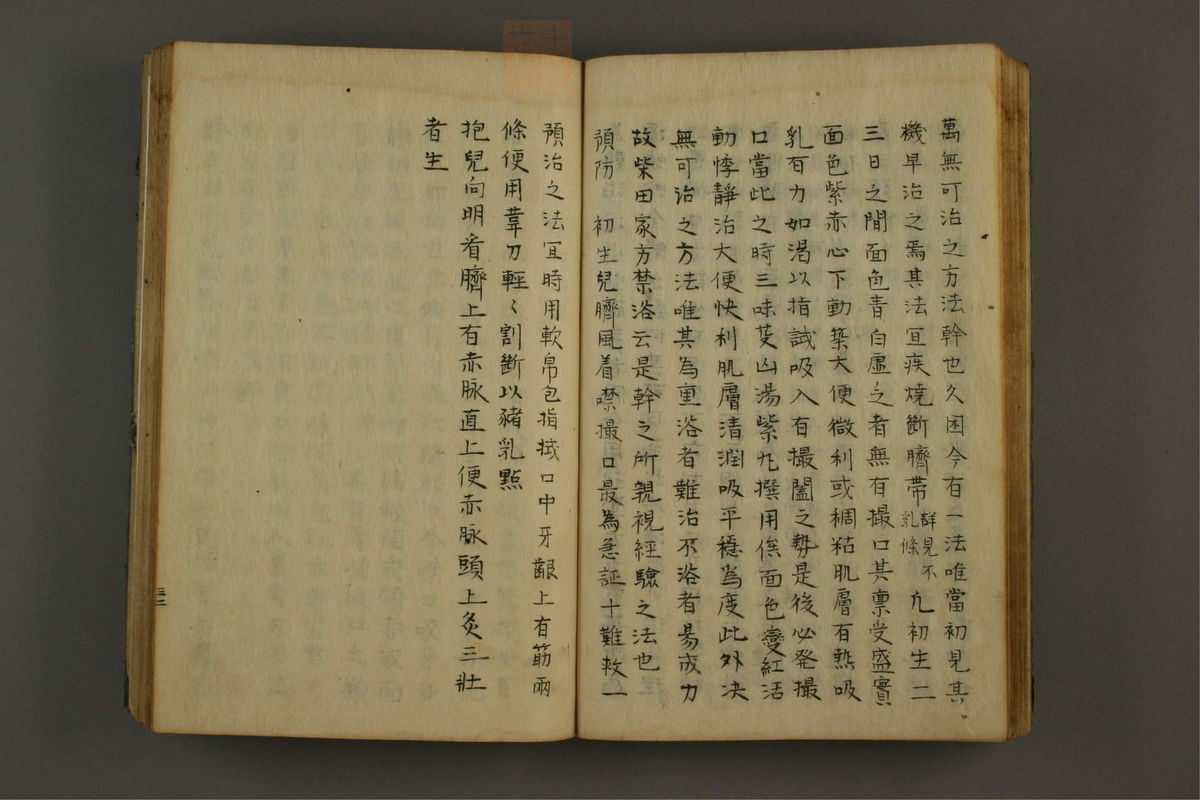 萬無可治之方法幹也久困今有一法唯當初見其
機早治之焉其法宜疾燒斷臍帶詳見不乳條凡初生二
三日之間面色青白虛乏者無有撮口其稟受盛實
面色紫赤心下動築大便微利或稠粘肌膚有熱吸
乳有力如渴以指試吸入有撮闔之勢是後必発撮
口當此之時三味芟凶湯紫丸撰用俟面色變紅活
動悸靜治大便快利肌膚清潤吸平穩為度此外决
無可治之方法唯其為重浴者難治不浴者易成力
故柴田家方禁浴云是幹之所親視經驗之法也
預防 初生兒臍風着噤撮口最為急証十難救一
預治之法宜時用軟帛包指拭口中牙齦上有筋兩
條便用葦刀輕〻割斷以豬乳點
抱兒向明看臍上有赤脉直上便赤脉頭上灸三壯
者生